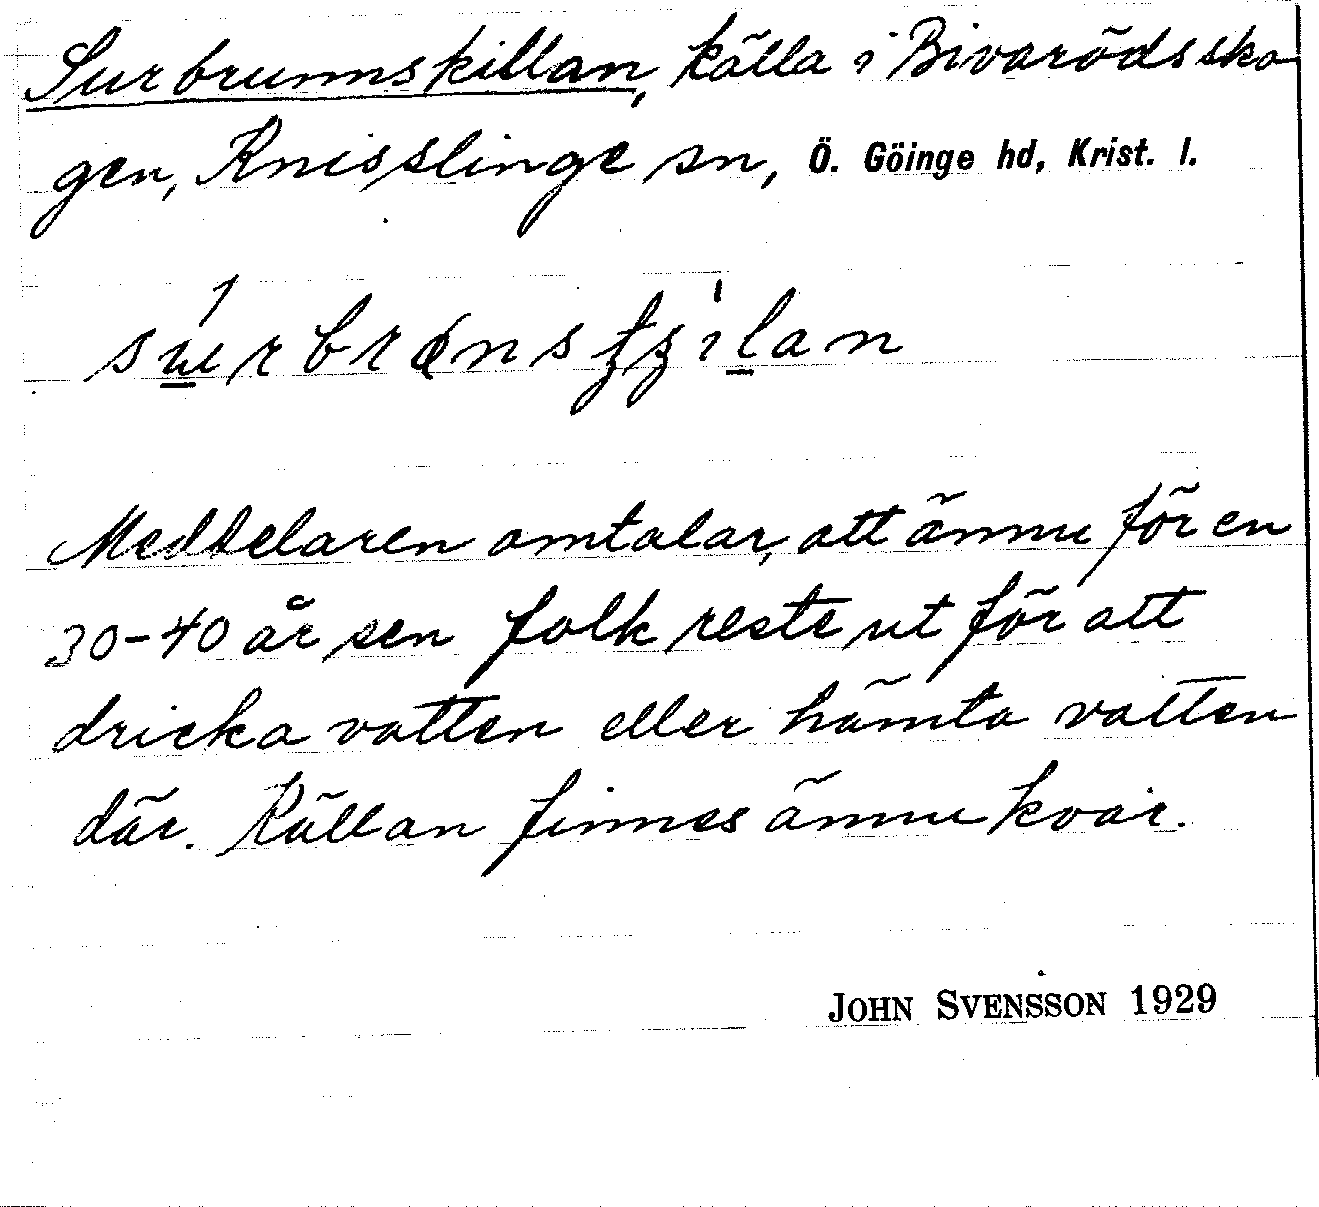 Surbrunnskillan, källa i Bivarödssko
gen, Knisslinge sn, Ö. Göinge hd, Krist. l.
Meddelaren omtalar, att ännu för en
30-40 år sen folk reste ut för att
dricka vatten eller hämta vatten
där. Källan finnes ännu kvar.
JOHN SVENSSON 1929